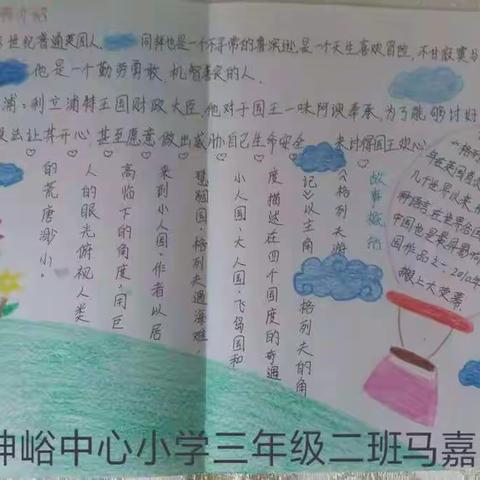 介绍
世纪普通英国人。 同样也是一个不寻常的鲁滨逊,是一个天生喜欢冒险,不甘寂寞与
他是一个勤劳勇敢,机智善良的人。
浦:利立浦特王国财政大臣,他对于国王一味阿谀奉承,为了能够讨好
法让其开心,甚至愿意做出威胁自己生命安全 来讨得国王欢心
故事城行
《格列夫游
记》以主角
格列夫的角
度描述在四个国度的奇遇
小人国、大人国、飞岛国和
慧骃国。格列夫遇海难,
来到小人国,作者以居
高临下的角度,用巨
人的眼光俯视人类
的荒唐渺小。
《格列
与在英国
几个世界以来,
种语言,在世界各国
中国也是最具影响
国作品之一。2010年
搬上大荧幕。
神峪中心小学三年级二班马嘉